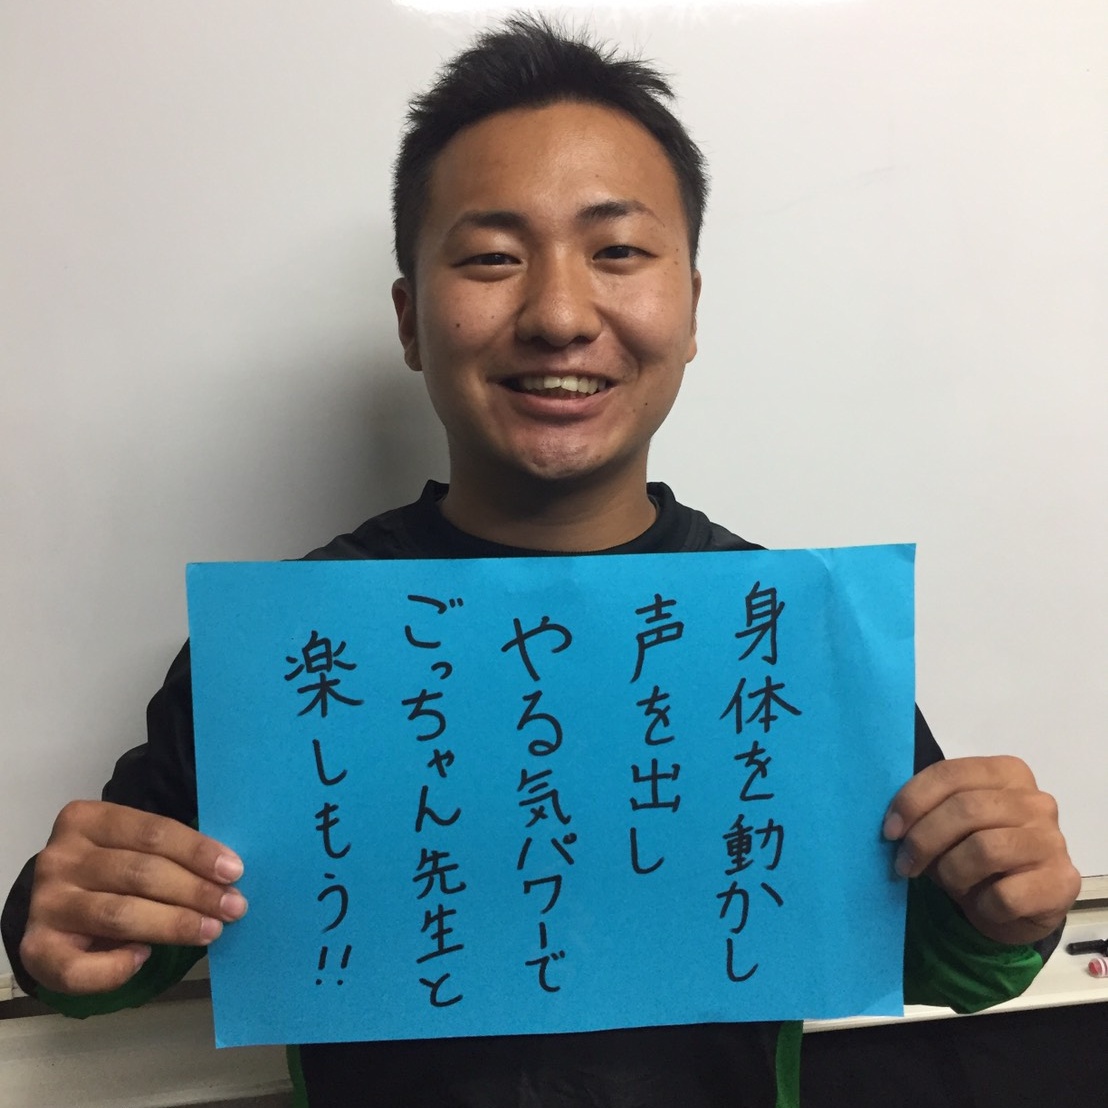 身体を動かし
声を出し
やる気パワーで
ごっちゃん先生と
楽しもう!!